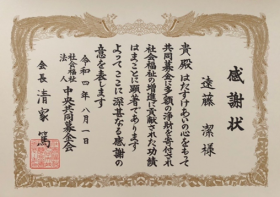 感謝状
遠藤 潔 様
貴殿はたすけあいの心をもって
共同募金に多額の浄財を寄付され
社会福祉の増進に貢献された功績
はまことに顕著であります
よってここに深甚なる感謝の
意を表します
令和四年八月一日
社会福祉法人 中央共同募金会
会長 清家 篤